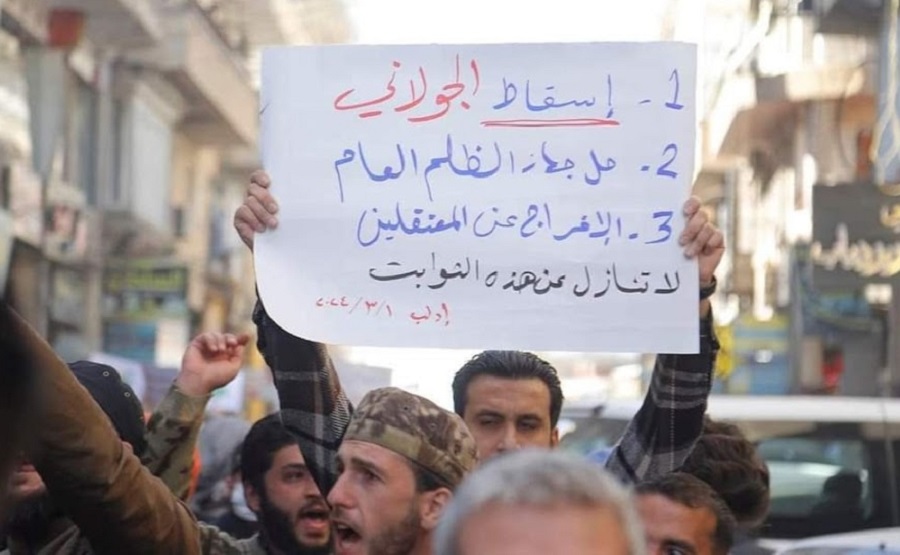 1- إسقاط الجولاني
2- حل جهاز الظلم العام
3- الإفراج عن المعتقلين
لا تنازل عن هذه الثوابت
إدلب ٢٠٢٤/٣/١